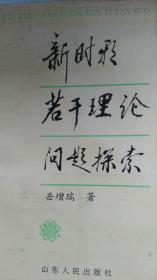 新时期
若干理论
问题探索
岳增瑞 著
山东人民出版社